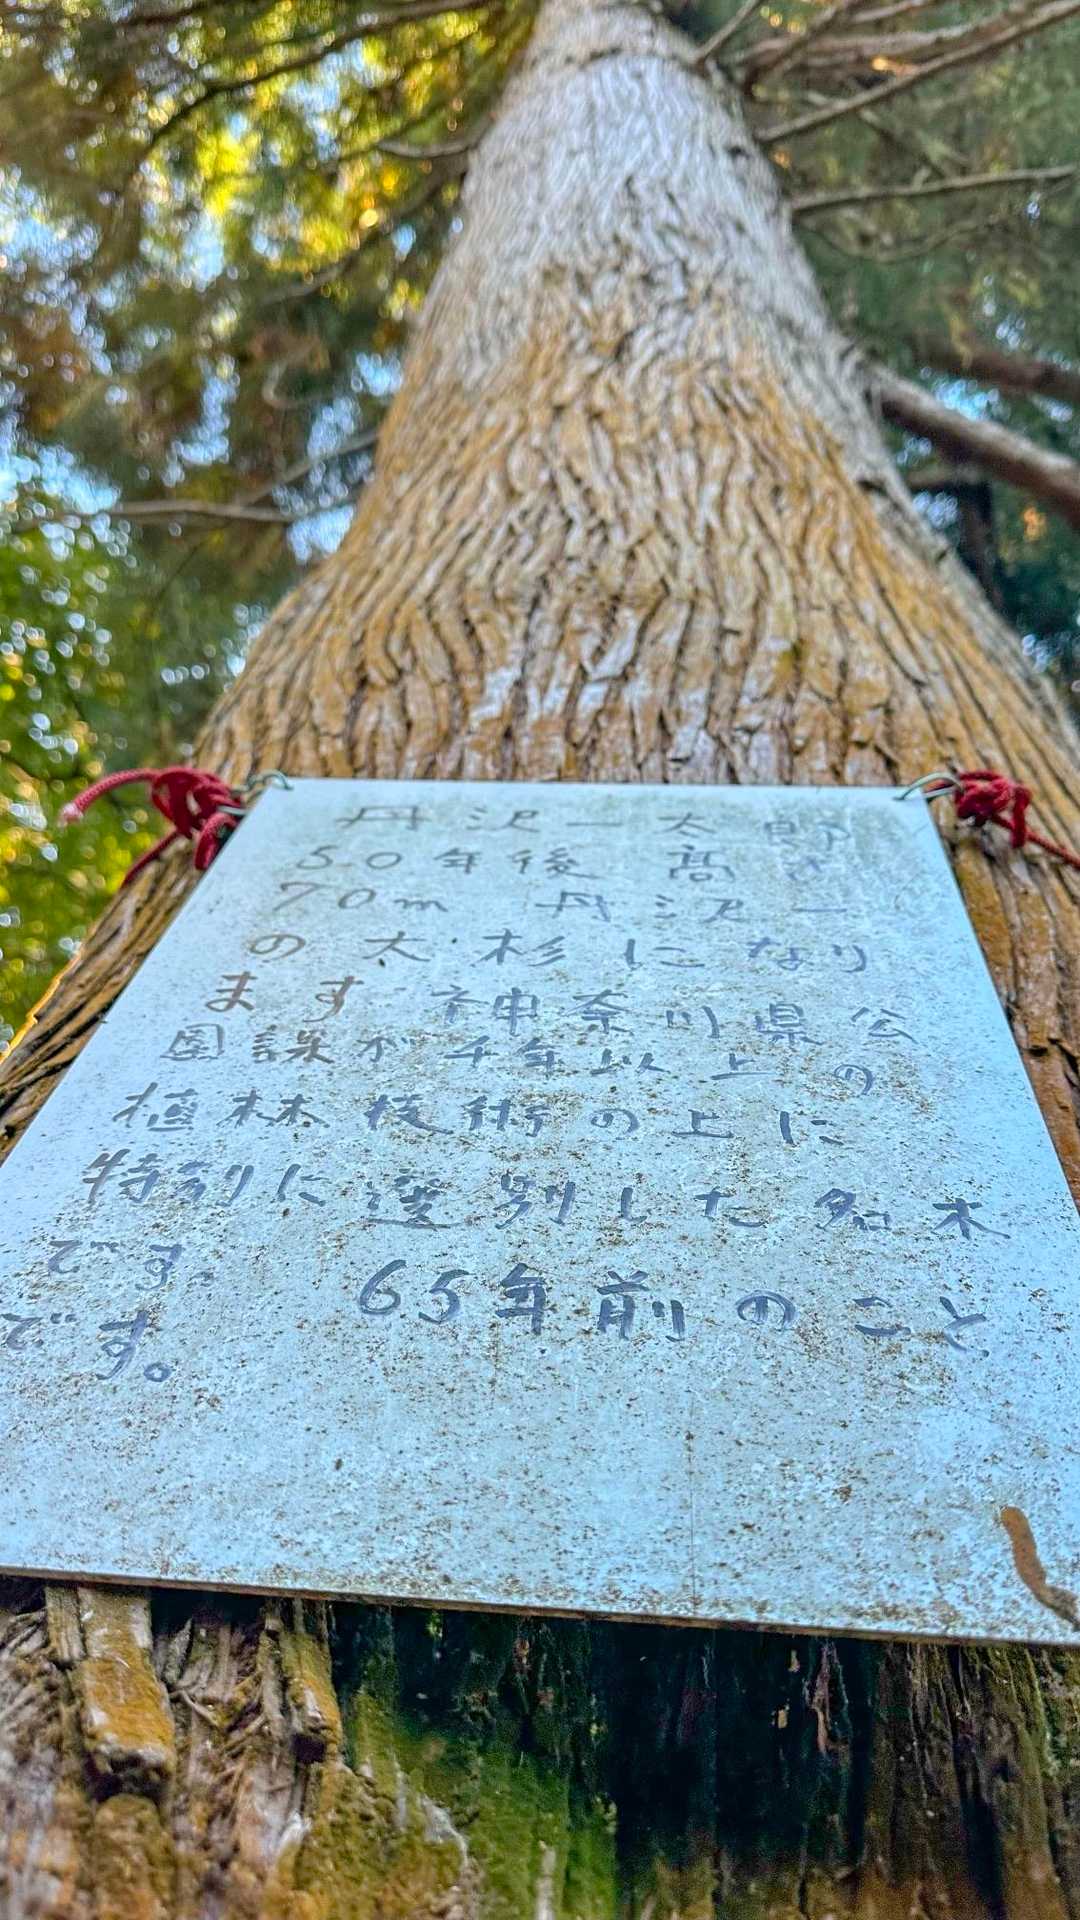 丹沢一太郎
50年後 高さ
70m 丹沢一
の大杉になり
ます 神奈川県公
園課が千年以上の
植林技術の上に
特別に選別した名木
です。 65年前のこと
です。